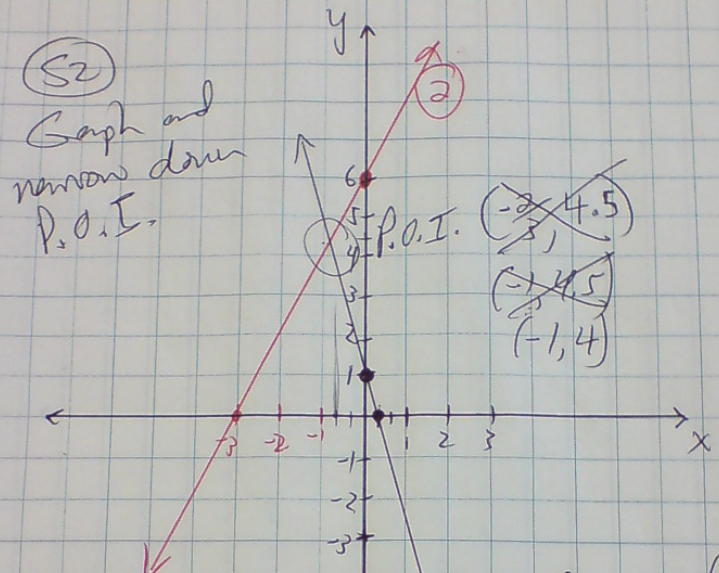 S2
Graph and
narrow down
P.O.I.
y
2
6
5
4
3
2
1
P.O.I.
(-1, 4)
-3 -2 -1 1 2 3
x
-1
-2
-3